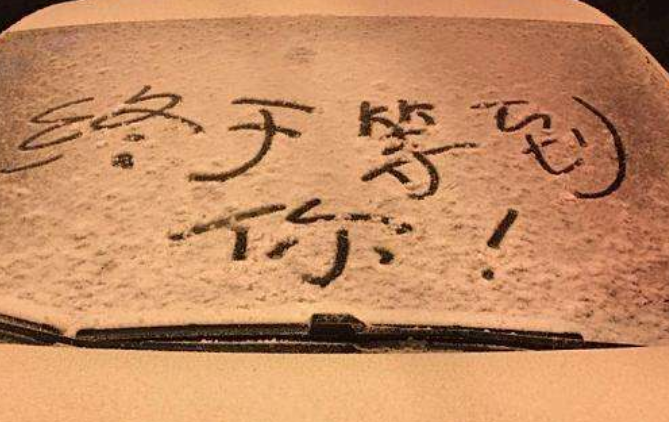 终于等到
你!